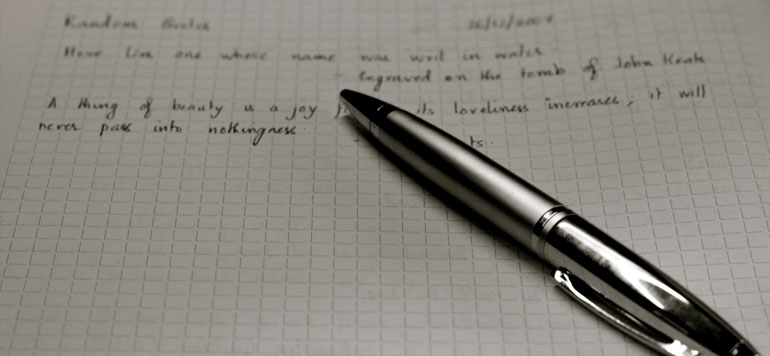 Random Quotes 26/12/2007
Here lies one whose name was writ in water
- Engraved on the tomb of John Keats
A thing of beauty is a joy its loveliness increases, it will
never pass into nothingness.
-